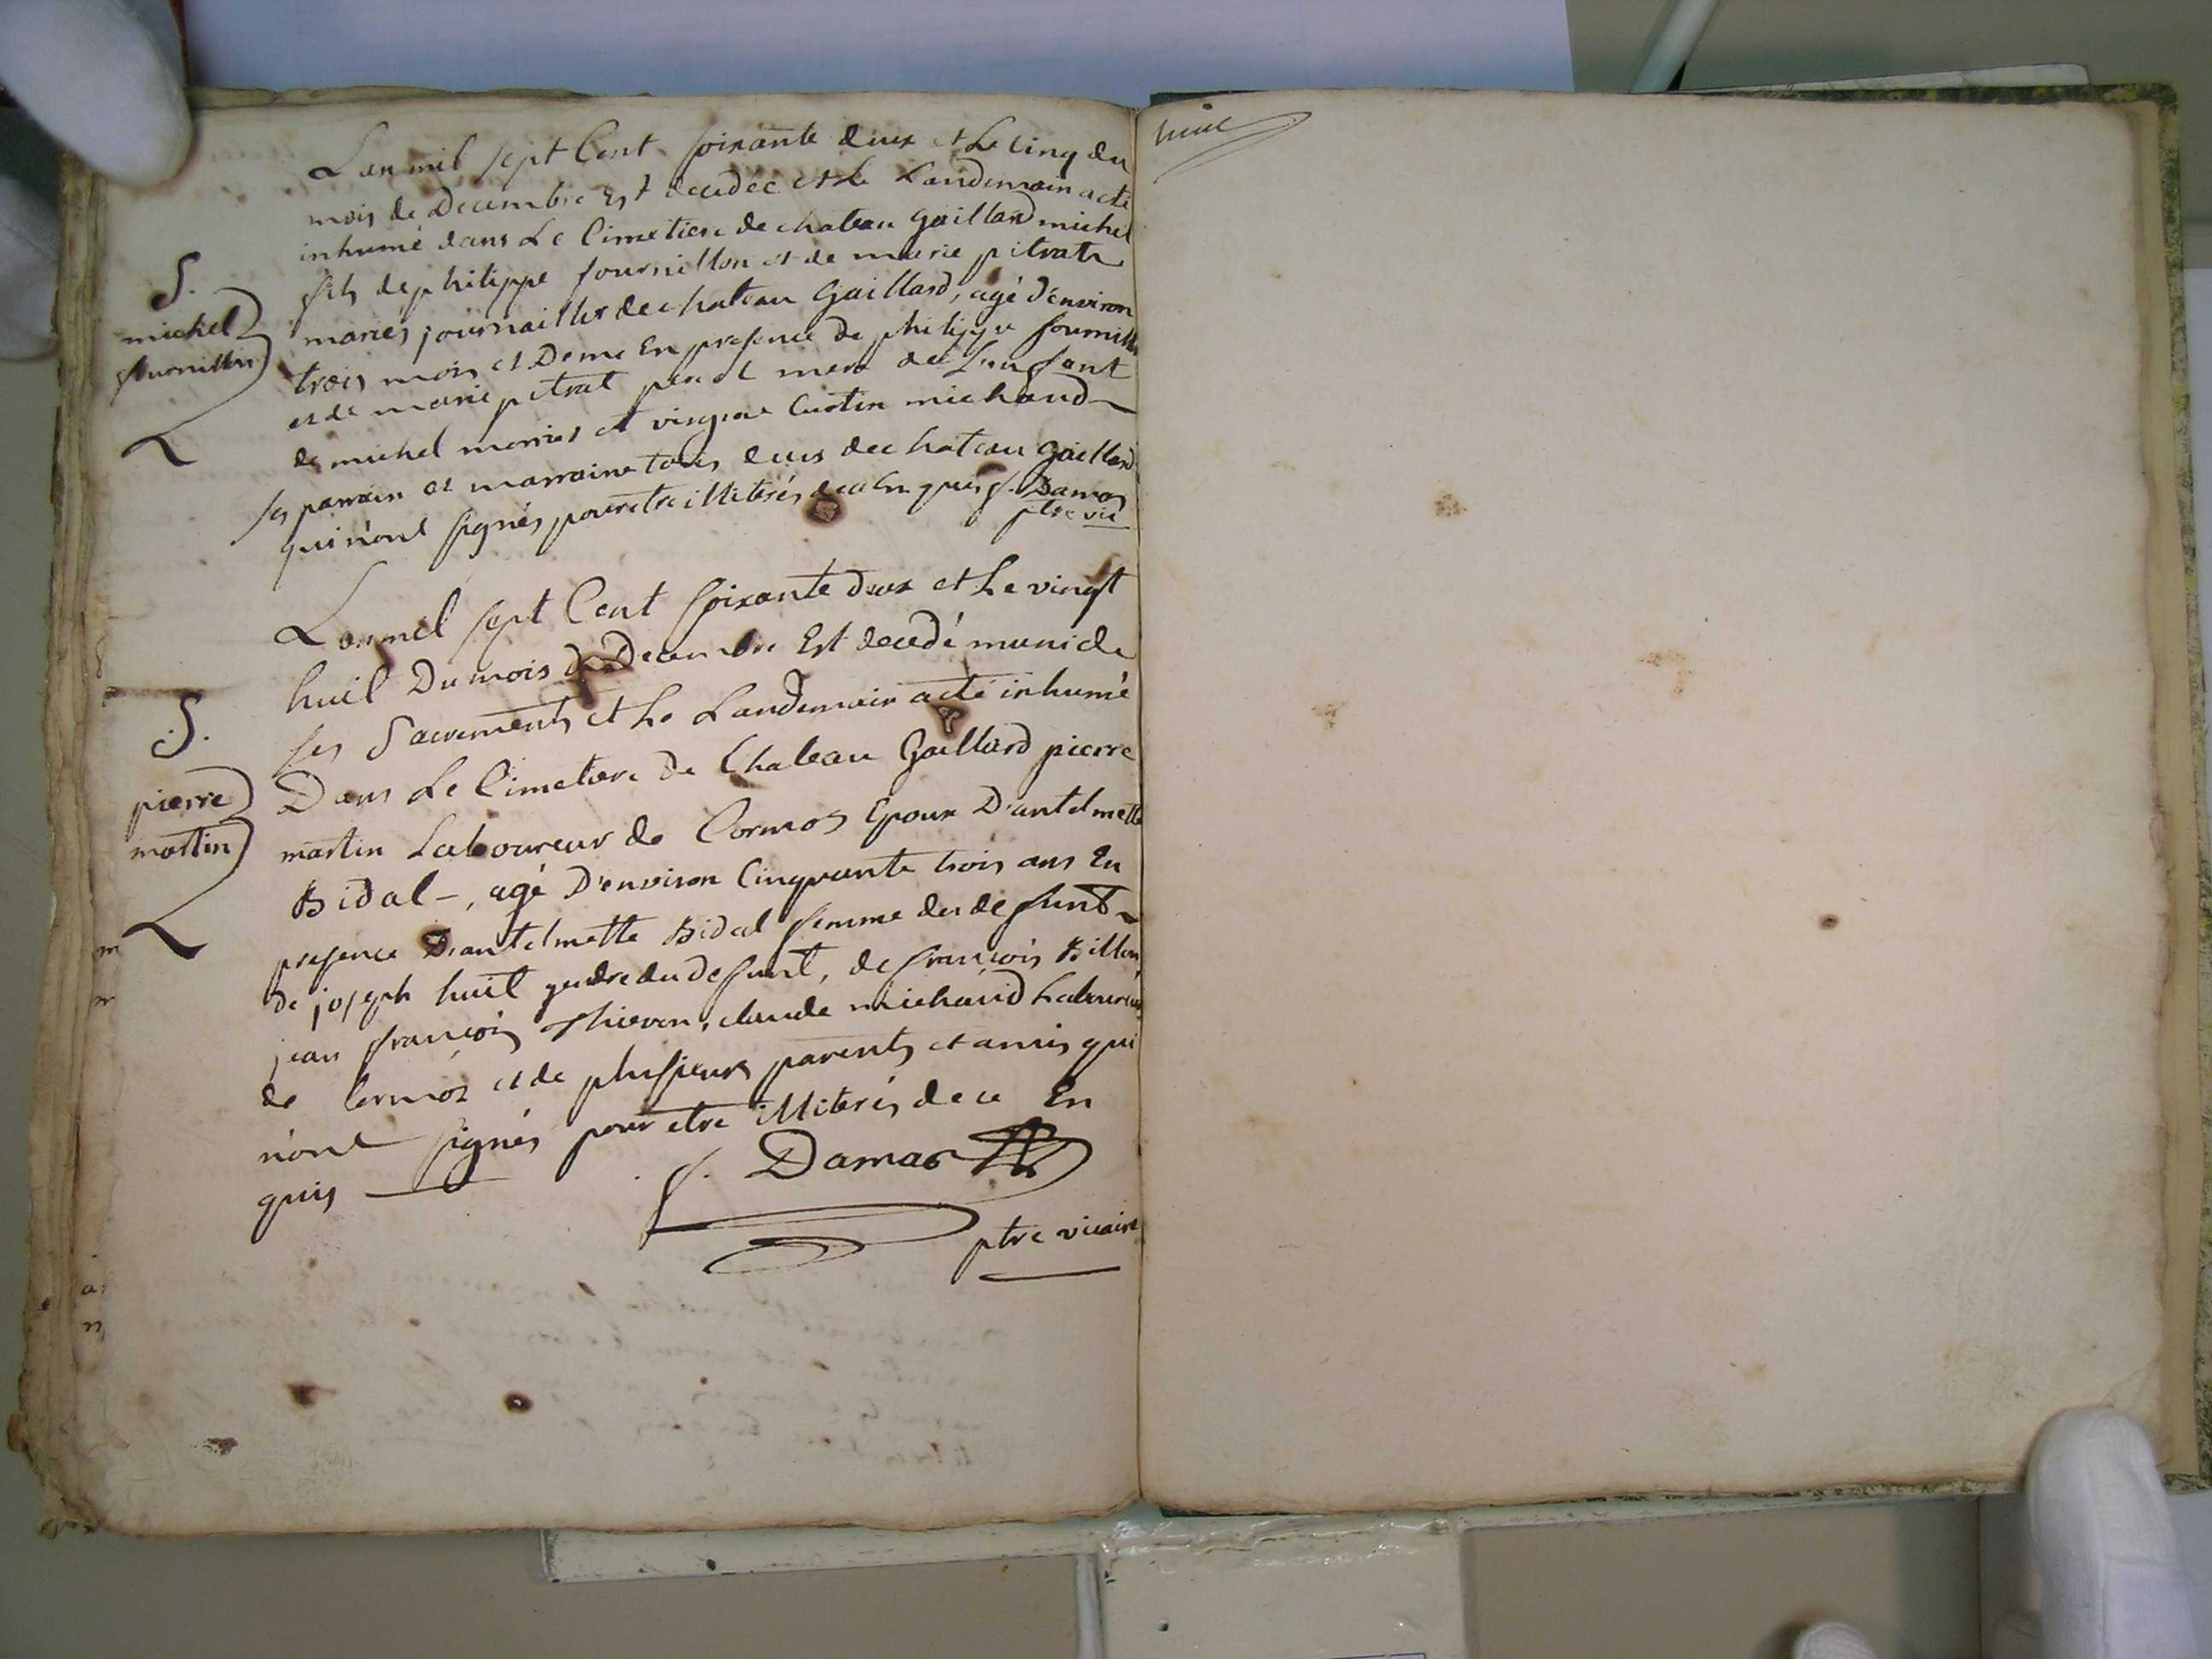 L'an mil sept Cent soixante deux et Le cinq du
mois de Decembre Est decedée et Le Landemain a eté
inhumé dans Le Cimetiere de chateau Gaillard michel
fils de philippe fournillon et de marie pitrat
mariés journailler de chateau Gaillard, agé d'environ
S.
michel
fournillon
trois mois et Demi En presence de philippe fournillon
et de marie pitrat pere et mere de L'enfant
de michel et michaud
ses parrain et marraine tous deux de chateau Gaillard
qui n'ont signés pour etre illiterés de ce Enquis f. Damas
ptre vic
L'an mil sept Cent soixante deux et Le vingt
huit Du mois de Decembre Est decedé muni de
ses Sacrements et Le Landemain a eté inhumé
Dans Le Cimetiere de Chateau Gaillard pierre
S.
pierre
martin
martin Laboureur de Cormoz Epoux D'antelmette
Bidal -, agé D'environ Cinquante trois ans En
presence D'antelmette Bidal femme du defunt
de joseph huit gendre du defunt, de françois Billon
jean françois Thieven, claude michaud Laboureurs
de Cormoz et de plusieurs parents et amis qui
n'ont signés pour etre illiterés de ce En
quis
f. Damas
ptre vicaire